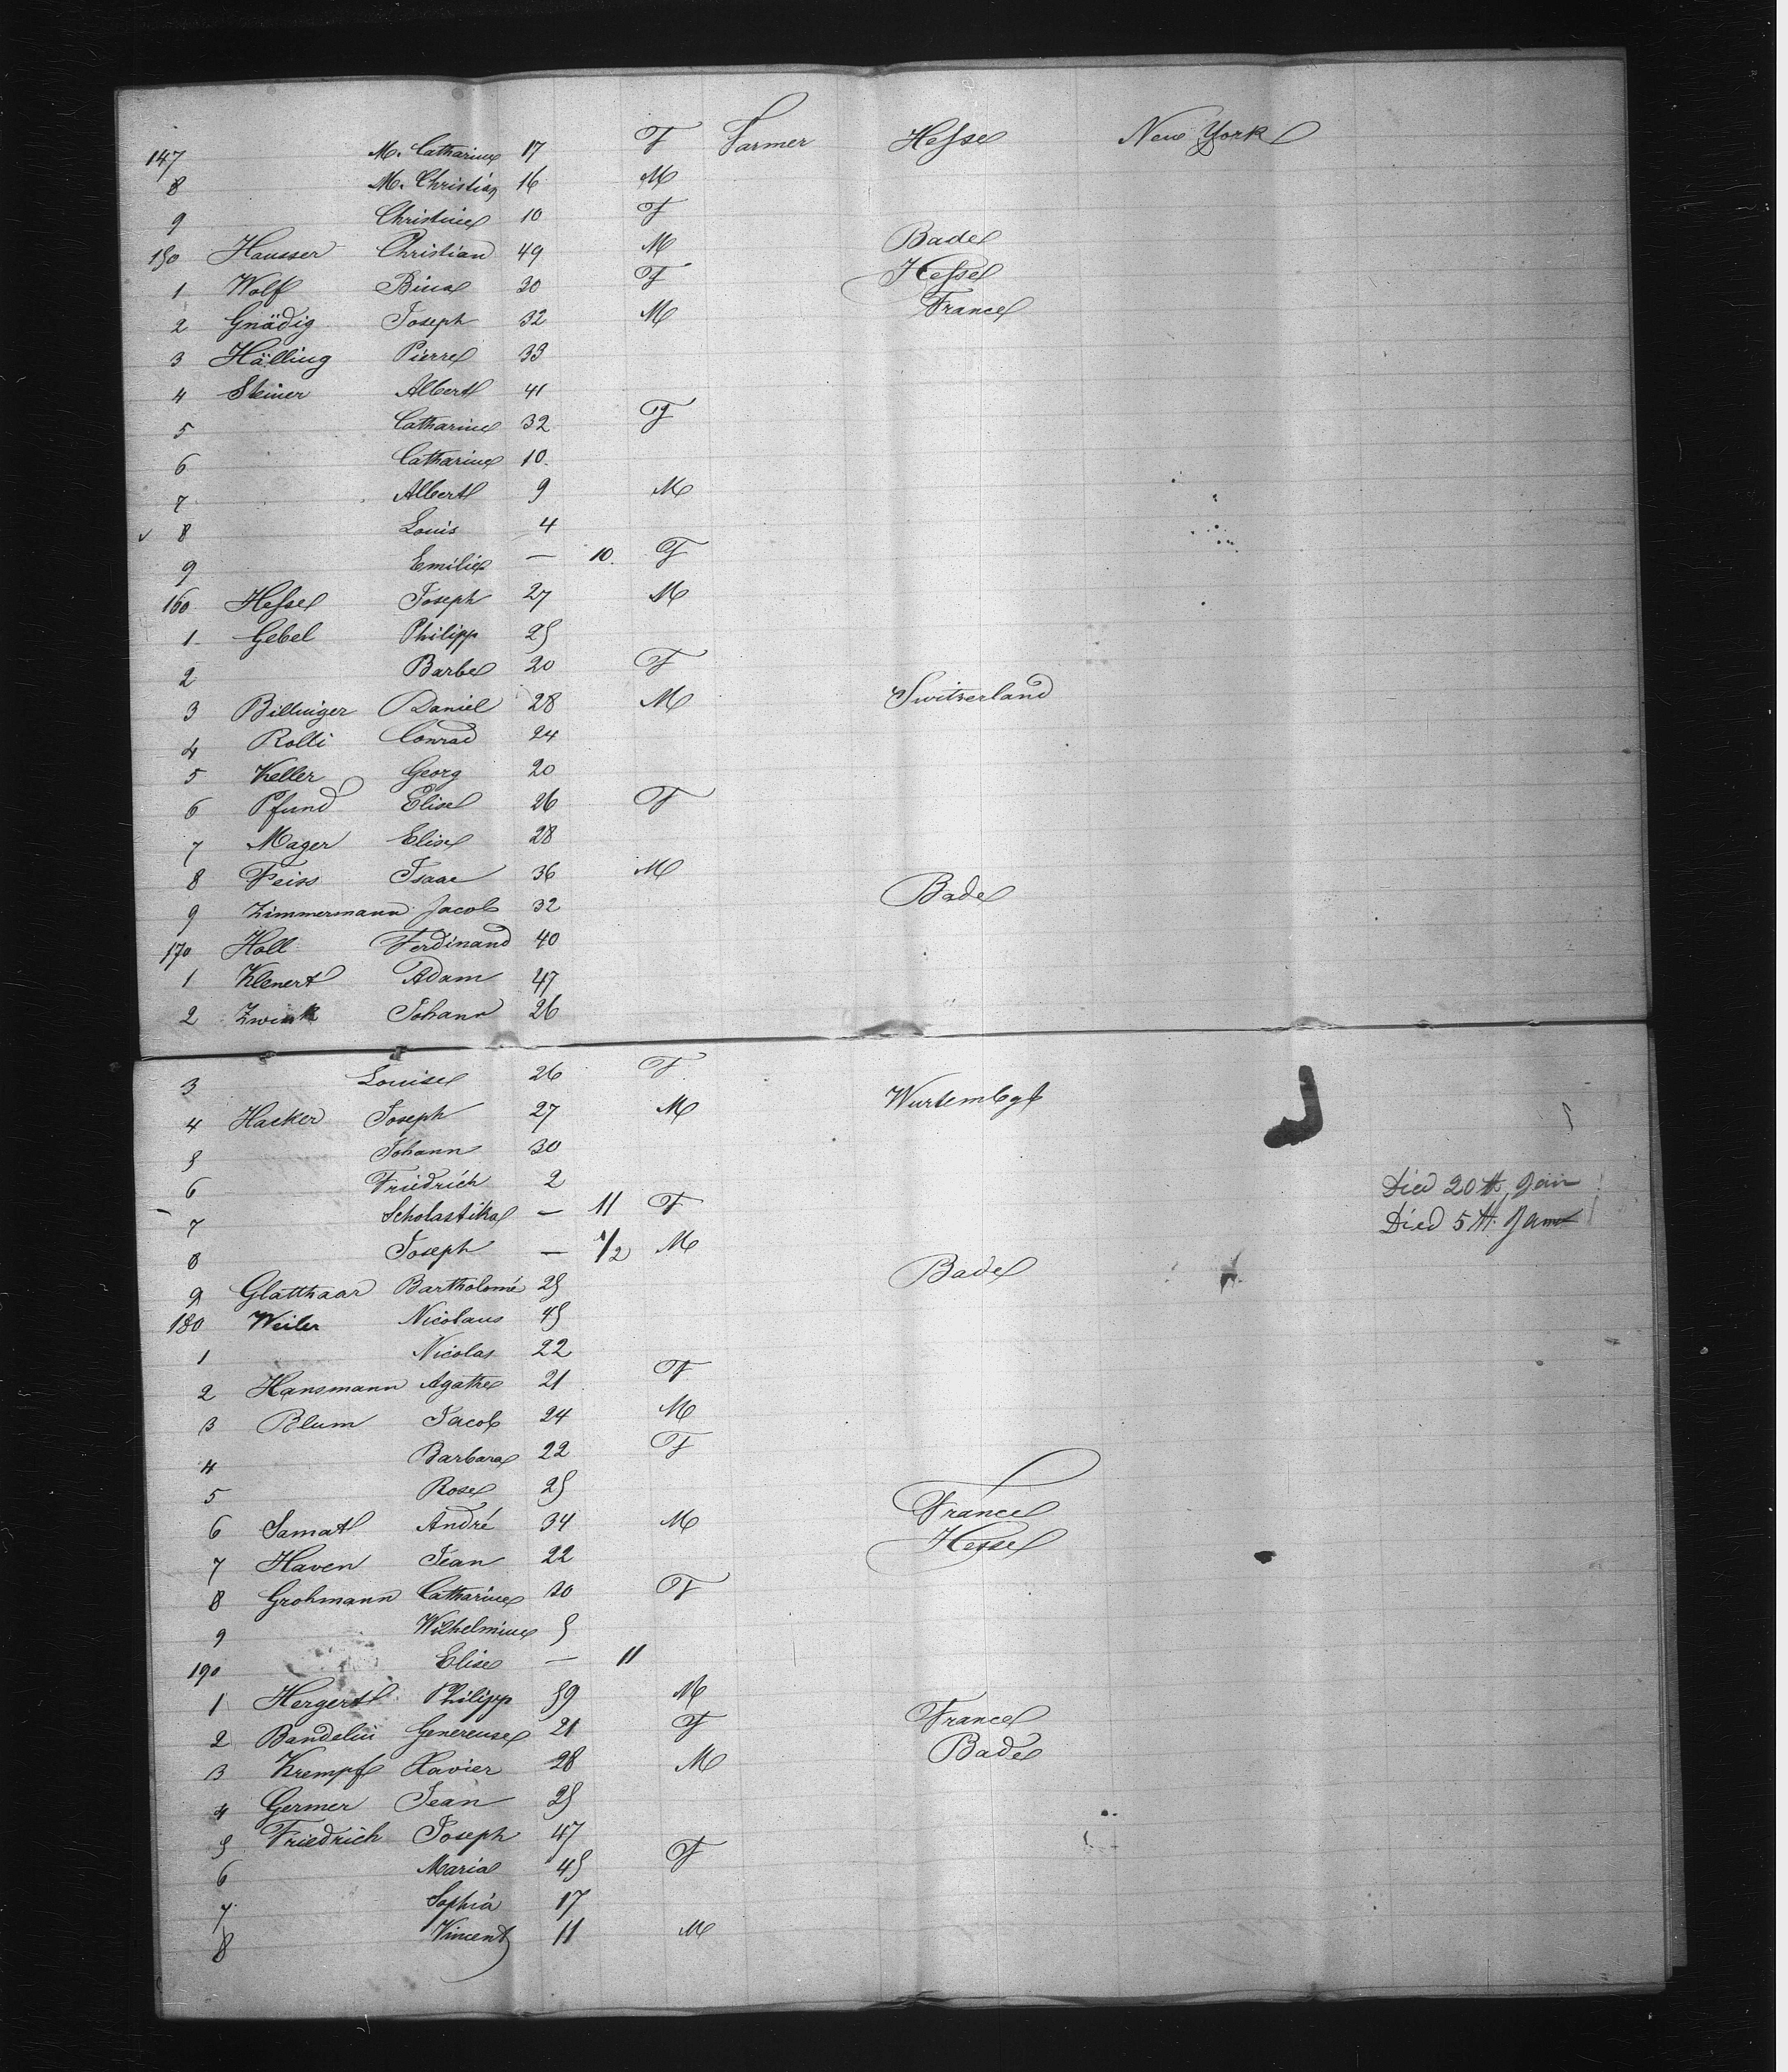 147 M. Catharine 17 F Farmer Hesse New York
8 M. Christian 16 M
9 Christine 10 F
150 Hausser Christian 49 M Bade
1 Wolf Bina 30 F Hesse
2 Gnädig Joseph 32 M France
3 Hälling Pierre 33
4 Steiner Albert 41
5 Catharine 32 F
6 Catharine 10
7 Albert 9 M
8 Louis 4
9 Emilie — 10 F
160 Hesse Joseph 27 M
1 Gebel Philipp 25
2 Barbe 20 F
3 Billinger Daniel 28 M Switserland
4 Rolli Conrad 24
5 Keller Georg 20
6 Pfund Elise 26 F
7 Mager Elise 28
8 Feiss Isaac 36 M
9 Zimmermann Jacob 32 Bade
170 Holl Ferdinand 40
1 Klenert Adam 47
2 Zwink Johann 26
3 Louise 26 F
4 Hacker Joseph 27 M Wurtembgt
5 Johann 30
6 Friedrich 2
7 Scholastika — 11 F Died 20th
8 Joseph — 1/2 M Died 5th
9 Glatthaar Bartholomé 25 Bade
180 Weiler Nicolaus 45
1 Nicolas 22
2 Hansmann Agathe 21 F
3 Blum Jacob 24 M
4 Barbara 22 F
5 Rose 25
6 Samat André 34 M France
7 Haven Jean 22 Hesse
8 Grohmann Catharine 30 F
9 Wilhelmine 5
190 Elise — 11
1 Hergert Philipp 59 M
2 Bandelin Genereuse 21 F France
3 Krempf Xavier 28 M Bade
4 Germer Jean 25
5 Friedrich Joseph 47
6 Maria 45 F
7 Sophia 17
8 Vincent 11 M